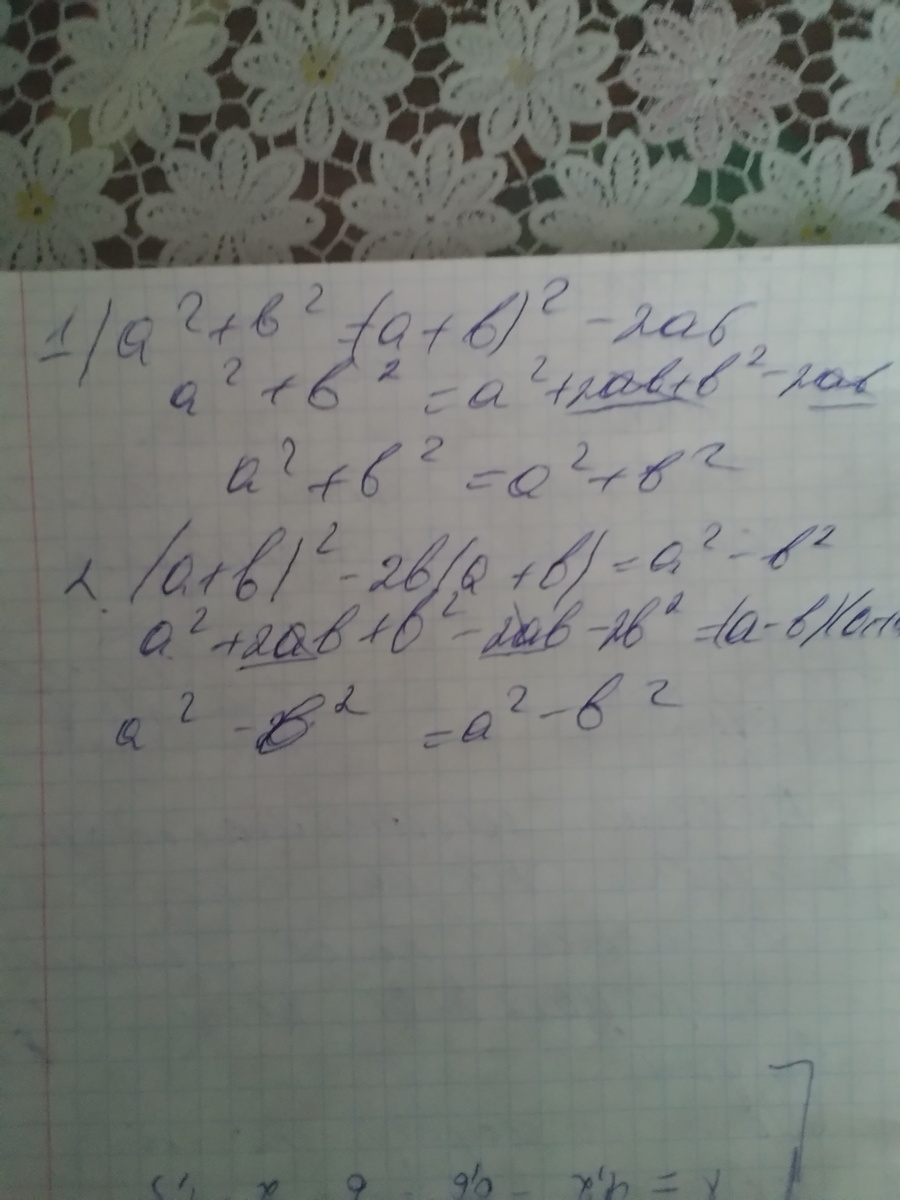 1) a² + b² = (a + b)² - 2ab
a² + b² = a² + 2ab + b² - 2ab
a² + b² = a² + b²
2. (a + b)² - 2b(a + b) = a² - b²
a² + 2ab + b² - 2ab - 2b² = (a - b)(a+
a² - b² = a² - b²